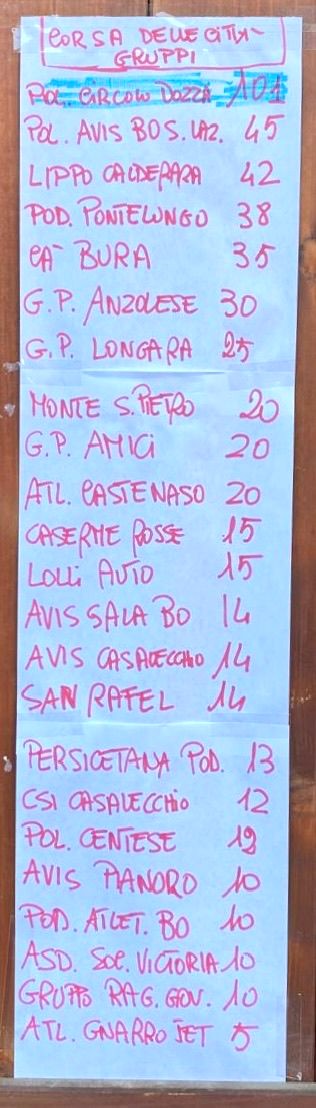 CORSA DELLE CITTA-
GRUPPI
POL. CIRCOLO DOZZA 101
POL. AVIS BO S. LAZ. 45
LIPPO CALDERARA 42
POD. PONTELUNGO 38
CA- BURA 35
G.P. ANZOLESE 30
G.P. LONGARA 25
MONTE S. PIETRO 20
G.P. AMICI 20
ATL. CASTENASO 20
CASERME ROSSE 15
LOLLI AUTO 15
AVIS SALA BO 14
AVIS CASALECCHIO 14
SAN RAFEL 14
PERSICETANA POD. 13
CSI CASALECCHIO 12
POL. CENTESE
AVIS PIANORO 10
POD. ATLET. BO 10
ASD. SOC. VICTORIA 10
GRUPPO RAG. GOV. 10
ATL. GNARRO JET 5